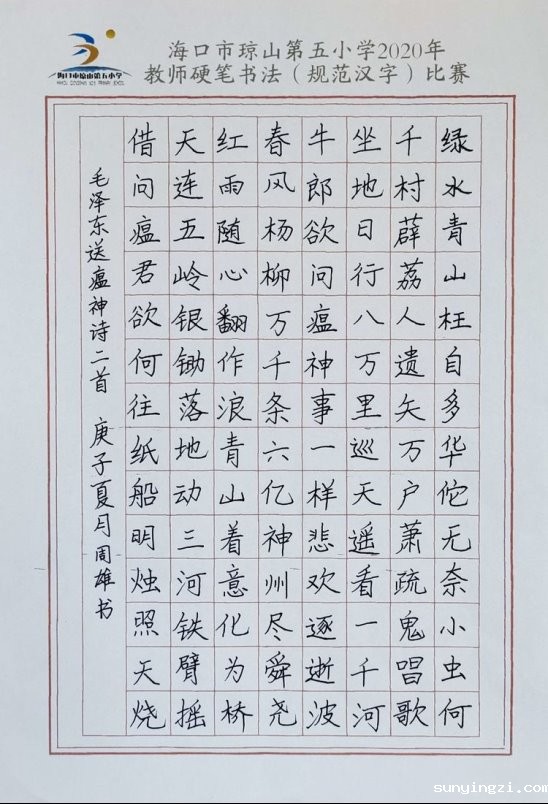 海口市琼山第五小学2020年
教师硬笔书法（规范汉字）比赛
海口市琼山第五小学
绿水青山枉自多华佗无奈小虫何
千村薜荔人遗矢万户萧疏鬼唱歌
坐地日行八万里巡天遥看一千河
牛郎欲问瘟神事一样悲欢逐逝波
春风杨柳万千条六亿神州尽舜尧
红雨随心翻作浪青山着意化为桥
天连五岭银锄落地动三河铁臂摇
借问瘟君欲何往纸船明烛照天烧
毛泽东送瘟神诗二首 庚子夏月周雄书
sunyingzi.com